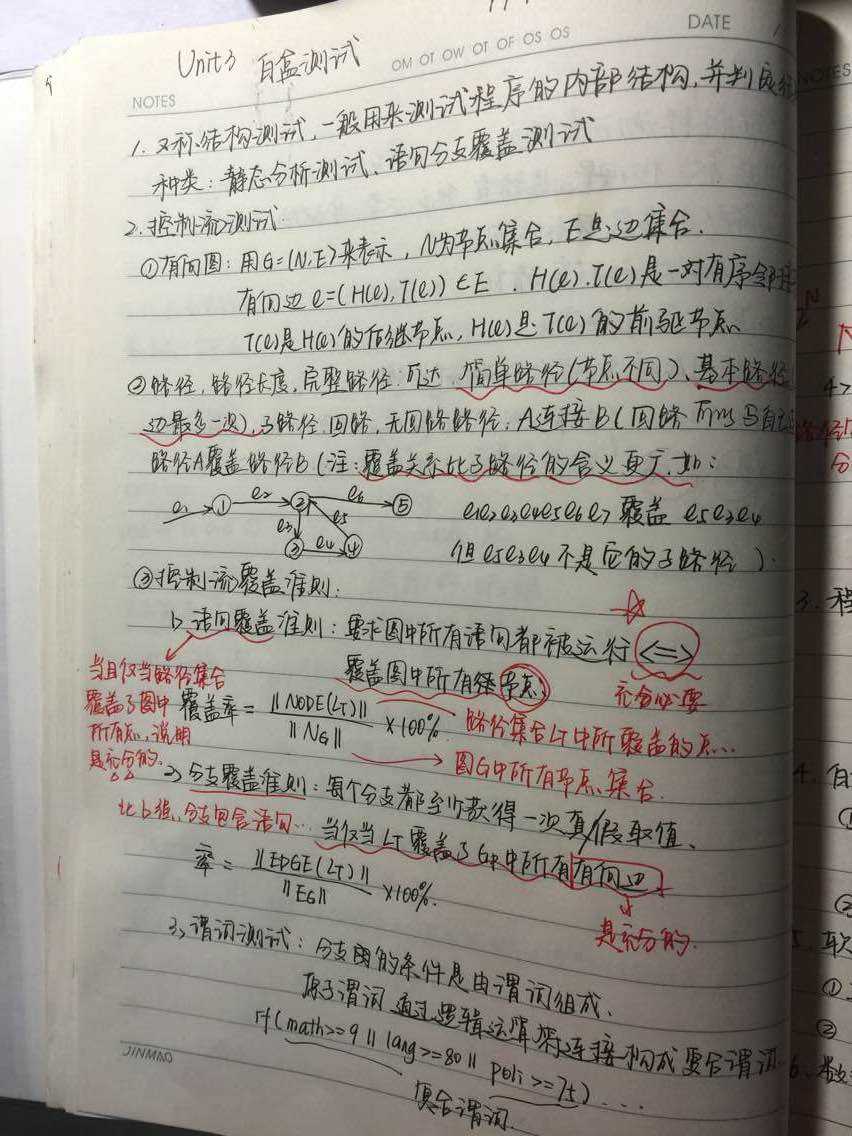 DATE
OM OT OW OT OF OS OS
Unit3 白盒测试
NOTES
1. 又称结构测试,一般用来测试程序的内部结构,并判度
种类:静态分析测试、语句分支覆盖测试
2.控制流测试.
①有向图:用G=(N,E)来表示,N为节点集合,E是边集合.
有向边 e=(H(e),T(e)) ∈E . H(e).T(e)是一对有序邻
T(e)是H(e)的后继节点,H(e)是T(e)的前驱节点
②路径,路径长度,完整路径.可达.简单路径(节点不同)、基本路径
边最多一次),子路径.回路.无回路路径;A连接B(回路可以与自己
路径A覆盖路径B(注:覆盖关系比子路径的含义更广.如:
e1 ① e2 ② e6 ⑤
e3 e5
③ e4 ④
e1e2e3e4e5e6e7 覆盖 e5e3e4
但e5e3e4不是它的子路径).
③控制流覆盖准则:
1>语句覆盖准则:要求图中所有语句都被运行 <=>
覆盖图中所有节点
充分必要
当且仅当路径集合
覆盖了图中
所有点,说明
是充分的.
覆盖率= ||NODE(LT)|| / ||NG|| ×100%.
路径集合LT中所覆盖的点...
图G中所有节点集合.
2>分支覆盖准则:每个分支都至少获得一次真/假取值、
比1强,分支包含语句...
当仅当LT覆盖了GP中所有有向边
率= ||EDGE(LT)|| / ||EG|| ×100%.
是充分的.
3>谓词测试:分支图的条件是由谓词组成.
原子谓词通过逻辑运算符连接构成复合谓词
if(math>=9 || lang>=80 || poli>=75)...
复合谓词.
JINMAO
NOTES
4>
3.程
4.白
①
②
5.软
①
②
6.数